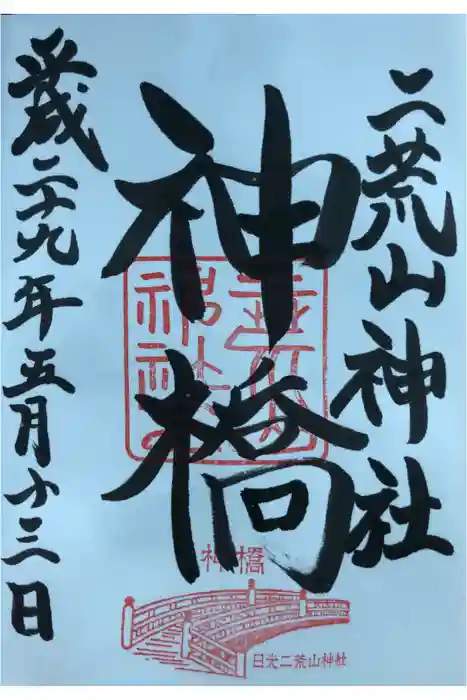 二荒山神社
神橋
平成二十九年五月十三日
神橋
日光二荒山神社